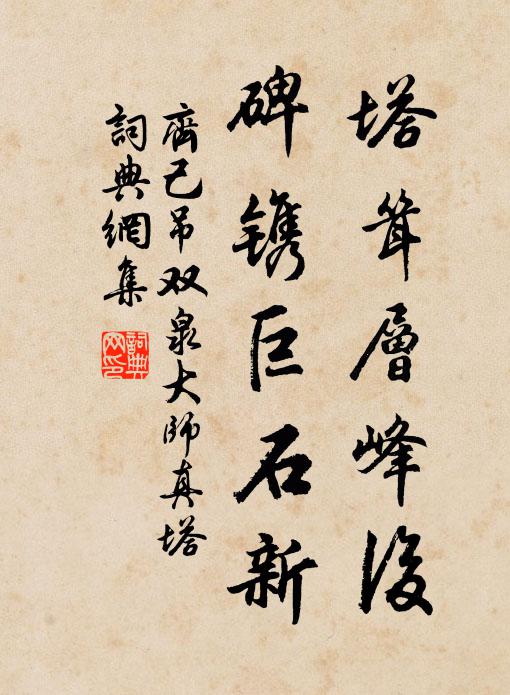 塔耸層峰後
碑镌巨石新
齊己吊双泉大師真塔
詞典網集
詞典网印